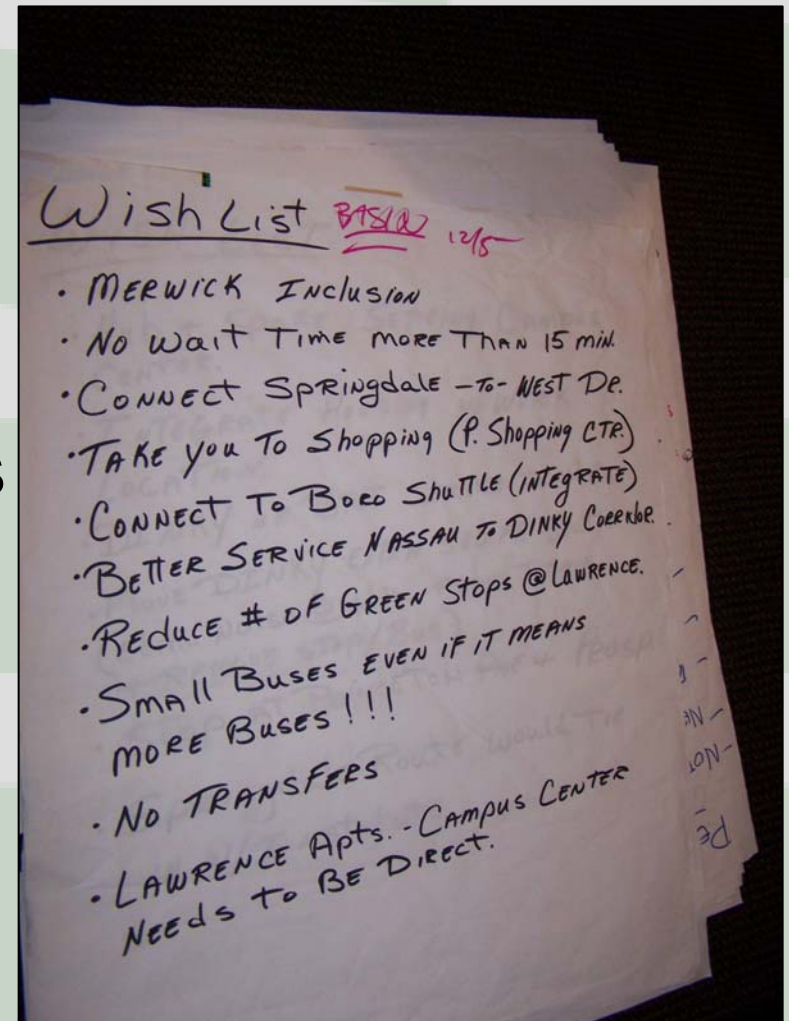 Wish List 12/5
• MERWICK INCLUSION
• NO WAIT TIME MORE THAN 15 MIN.
• CONNECT SPRINGDALE -TO- WEST DR.
• TAKE YOU TO Shopping (P. Shopping CTR.)
• CONNECT TO BORO SHUTTLE (INTEGRATE)
• BETTER SERVICE NASSAU TO DINKY CORRIDOR.
• REDUCE # OF GREEN STOPS @ LAWRENCE.
• SMALL BUSES EVEN IF IT MEANS
MORE BUSES !!!
• NO TRANSFERS
• LAWRENCE Apts. - CAMPUS CENTER
NEEDS TO BE DIRECT.
S